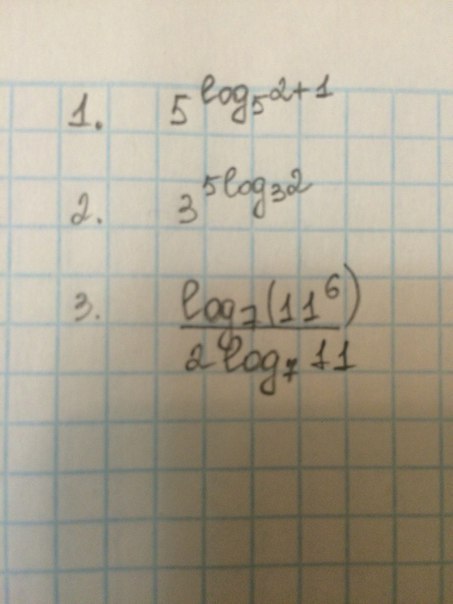 1. 5^{log_5 2+1}
2. 3^{5log_3 2}
3. \frac{log_7(11^6)}{2log_7 11}